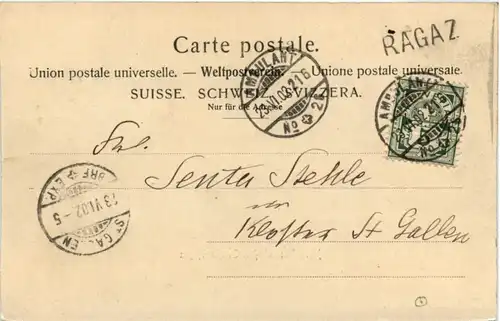 Carte postale.
RAGAZ
Union postale universelle. — Weltpostverein. — Unione postale universale
SUISSE. SCHWEIZ. SVIZZERA.
Nur für die Adresse
AMBULANT
23.VI.02.21
No 21
AMBULANT
No 21
Frl.
Senta Stehle
in
Kloster St Gallen
ST. GALLEN
23 VI.02.-5
BRF. EXP.